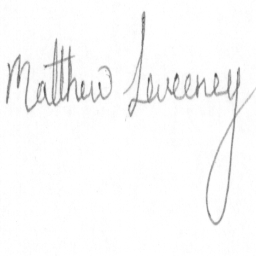 Matthew Leveeney